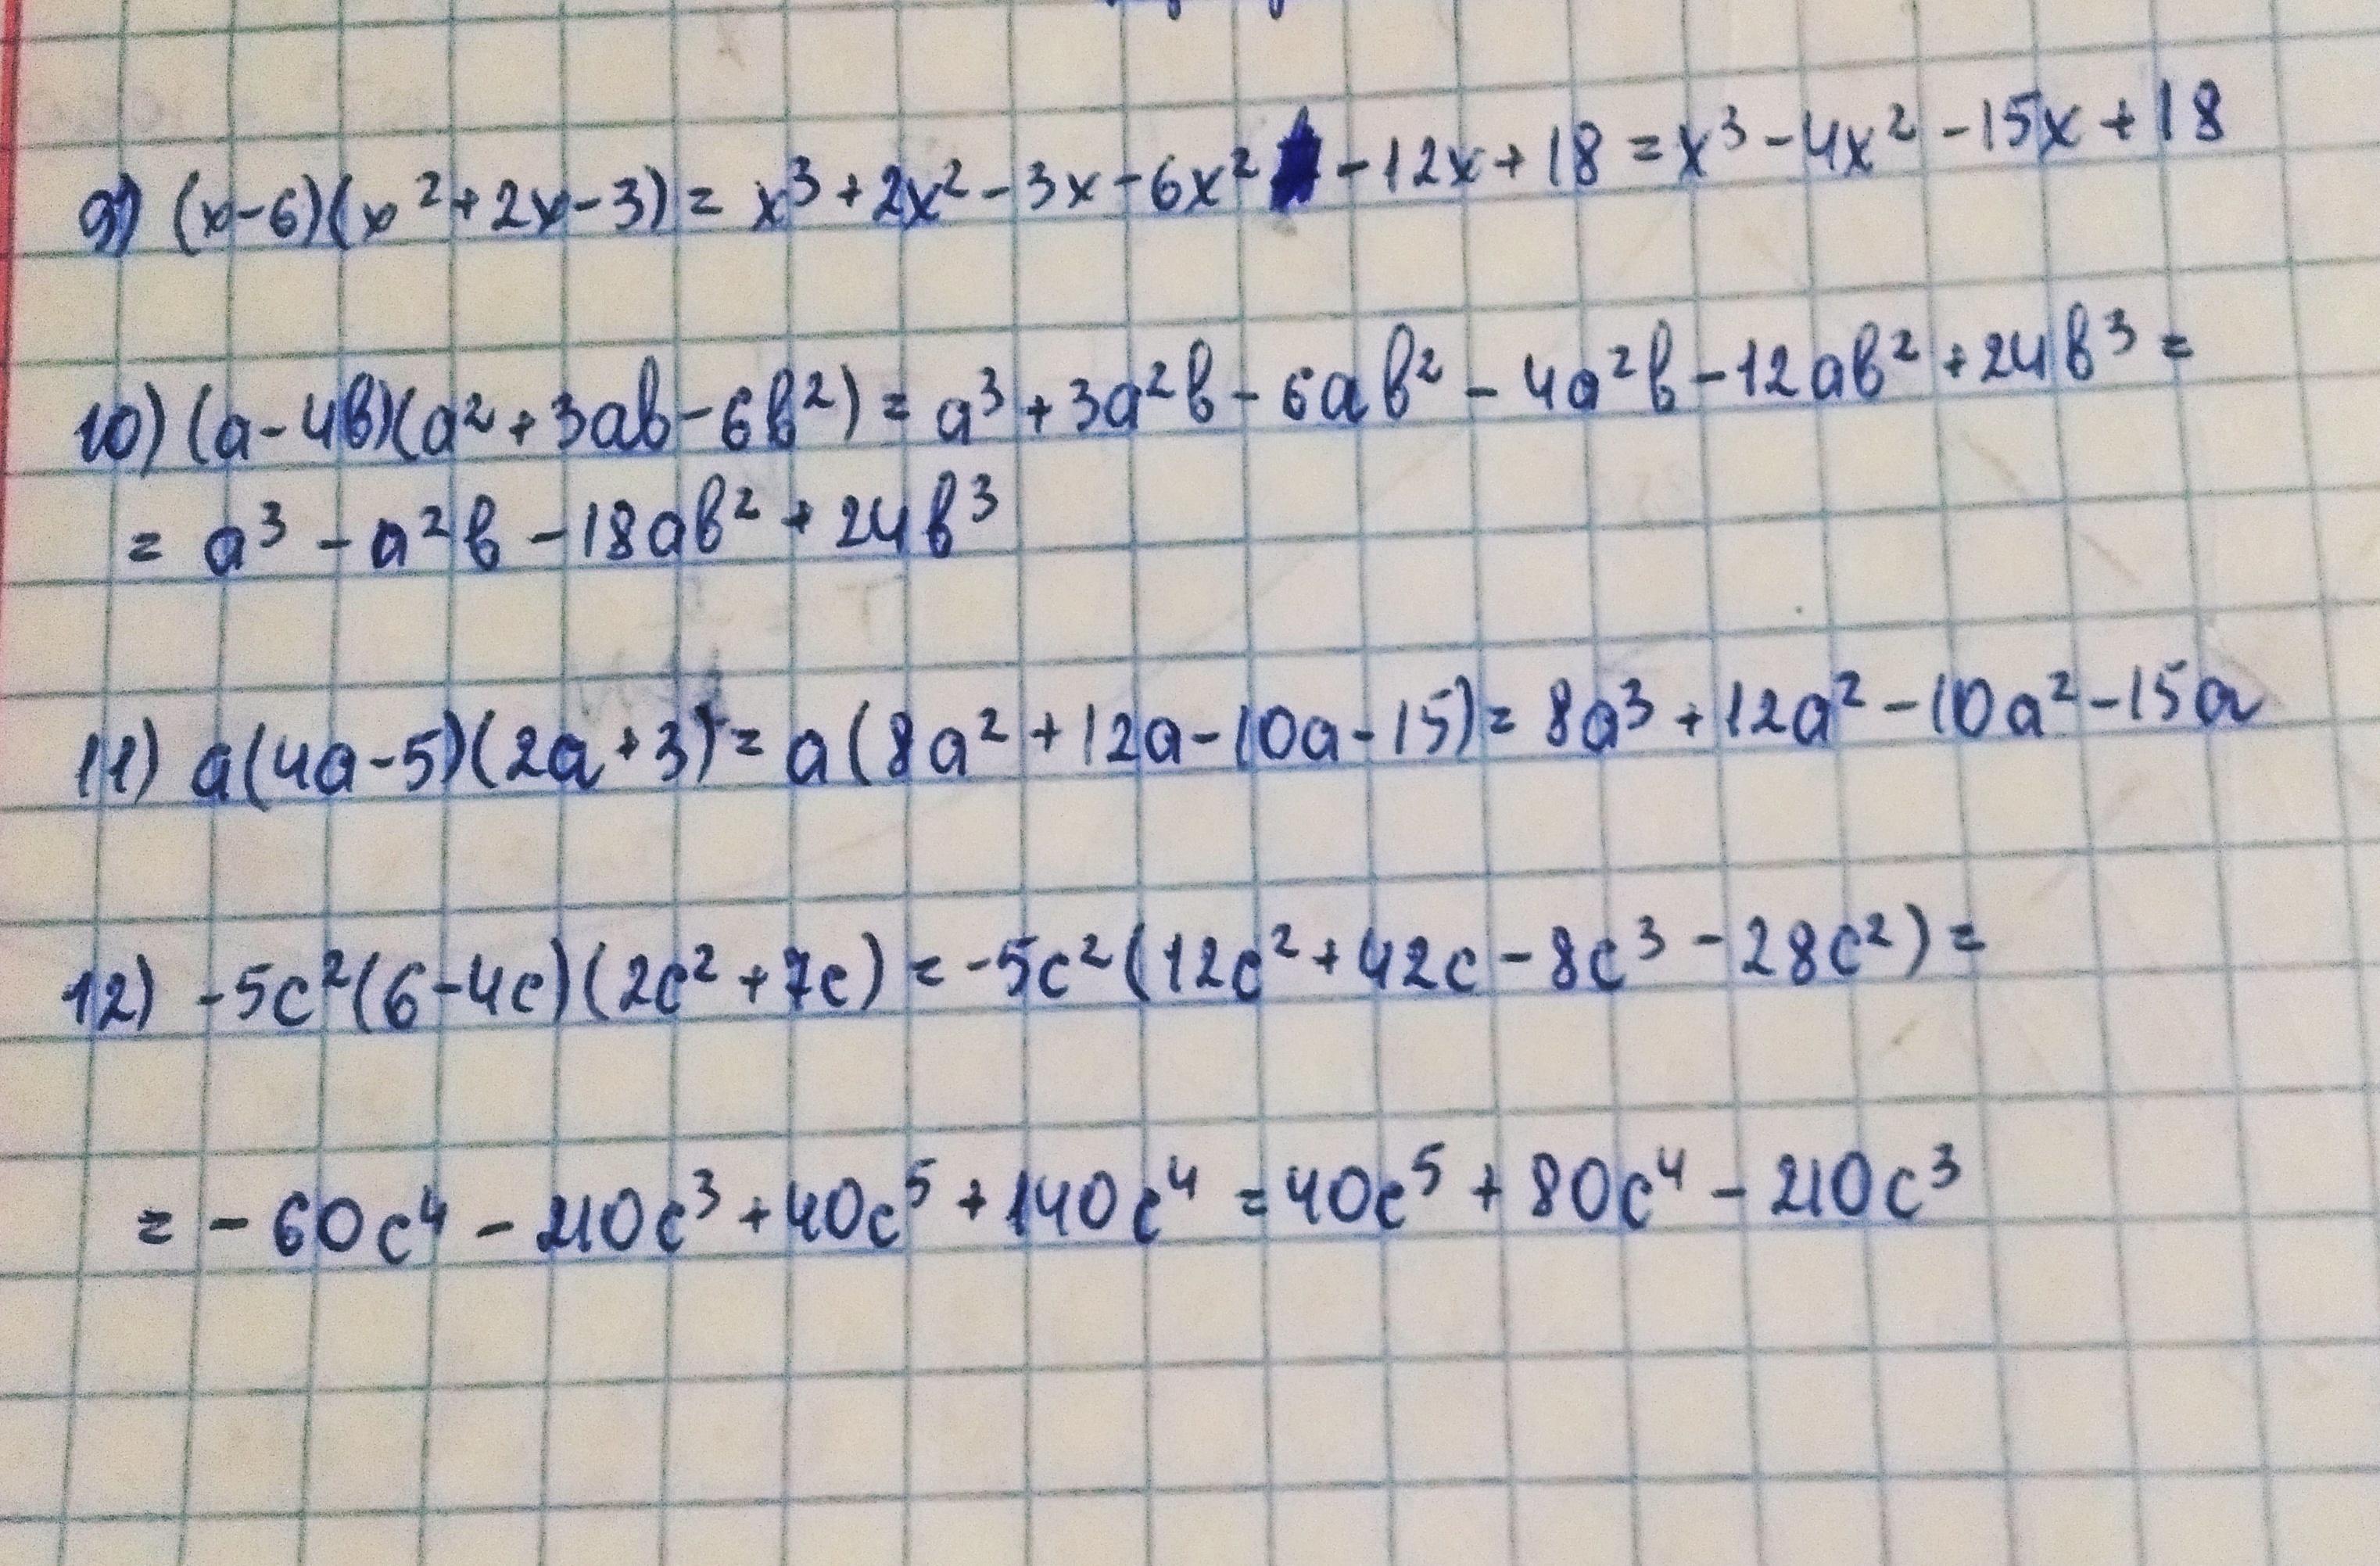 9) (x-6)(x²+2x-3)= x³+2x²-3x-6x² -12x+18=x³-4x²-15x+18
10) (a-4b)(a²+3ab-6b²)= a³+3a²b-6ab²-4a²b-12ab²+24b³=
= a³-a²b-18ab²+24b³
11) a(4a-5)(2a+3)= a(8a²+12a-10a-15)= 8a³+12a²-10a²-15a
12) -5c²(6-4c)(2c²+7c)=-5c²(12c²+42c-8c³-28c²)=
= -60c⁴-210c³+40c⁵+140c⁴=40c⁵+80c⁴-210c³